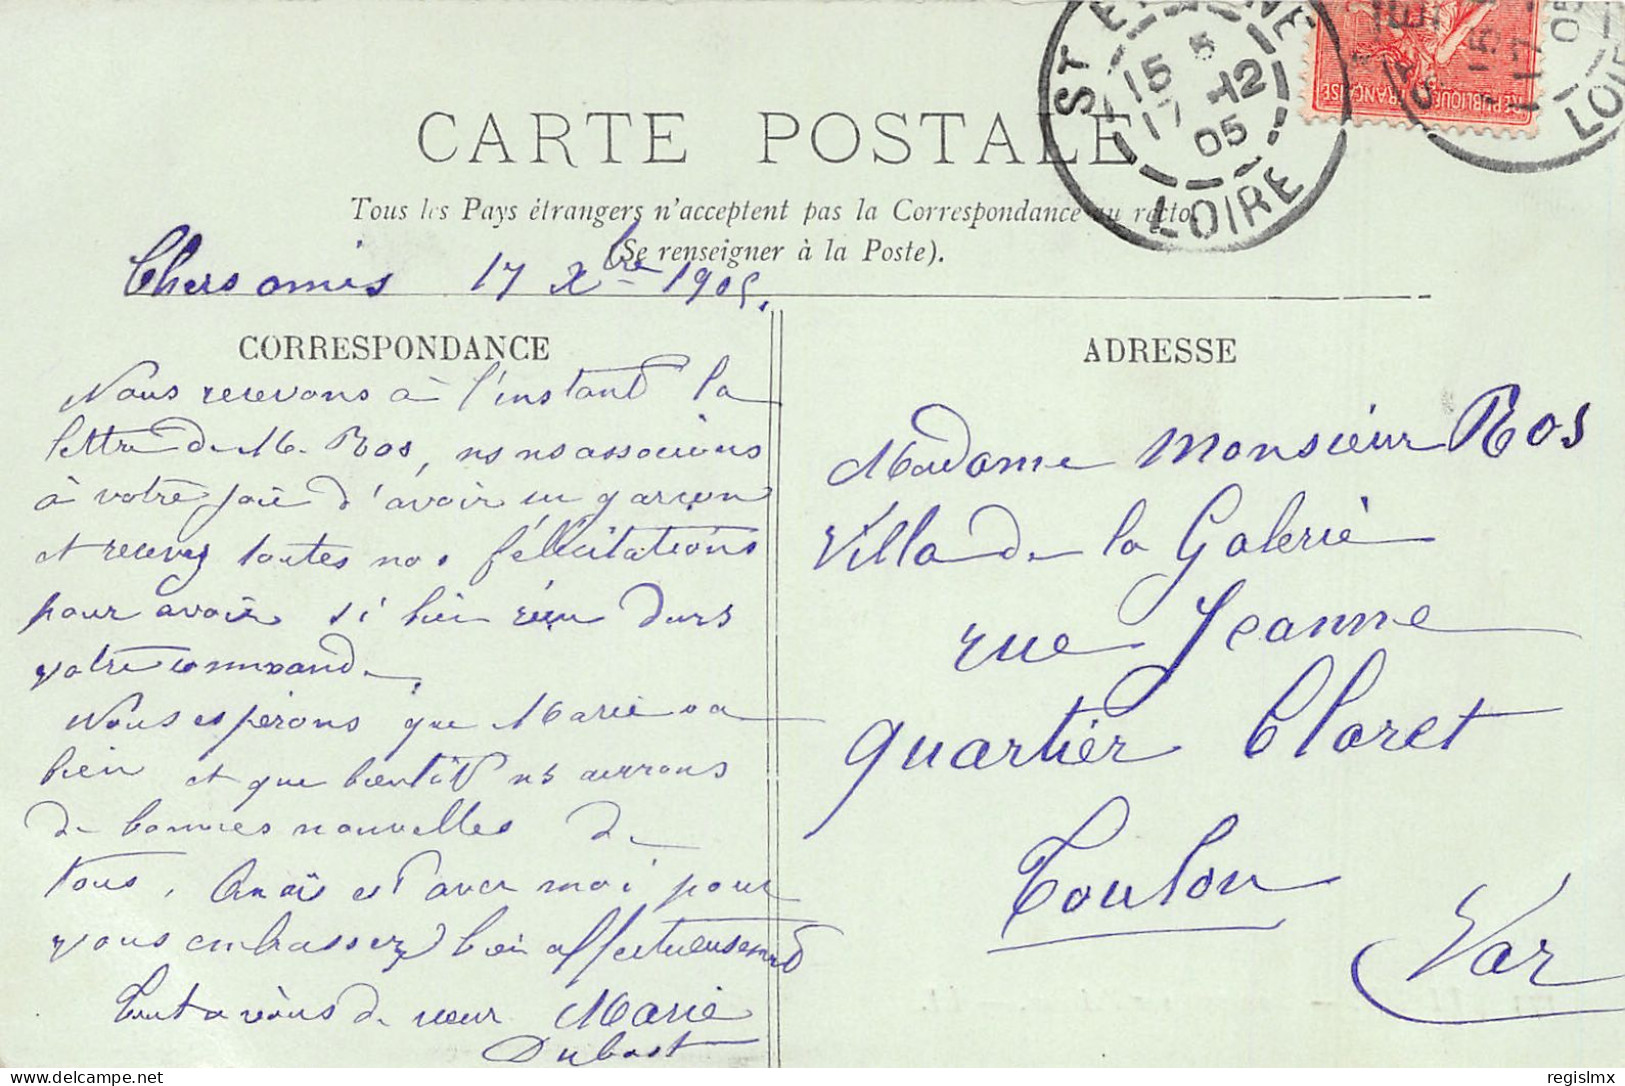 CARTE POSTALE
Tous les Pays étrangers n'acceptent pas la Correspondance au recto.
(Se renseigner à la Poste).
Chers amis 17 Xbre 1905.
CORRESPONDANCE
Nous recevons à l'instant la
lettre de M. Ros, ns ns associons
à votre joie d'avoir un garçon
et recevez toutes nos félicitations
pour avoir si bien réussi dans
votre commande.
Nous espérons que Marie va
bien et que bientôt ns aurons
de bonnes nouvelles de
tous. Anaïs est avec moi pour
vous embrasser bien affectueusement
Tout à vous de cœur Marie
Dubost
ADRESSE
Madame Monsieur Ros
Villa de la Galerie
rue Jeanne
quartier Claret
Toulon
Var
ST ETIENNE
15 5
17 -12
05
LOIRE
REPUBLIQUE FRANÇAISE
LOIRE
regislmx